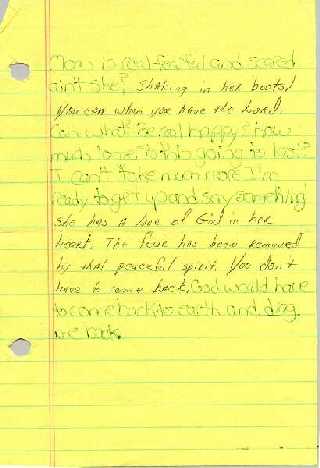 Mom is real fearful and scared
ain't she? Shaking in her boots!
You can when you have the Lord!
Can what? Be so happy? How
much longer is this going to last?
I can't take much more. I'm
ready to get up and say something
She has a love of God in her
heart. The fear has been removed
by that peaceful spirit. You don't
have to come back. God would have
to come back to earth and drag
me back.